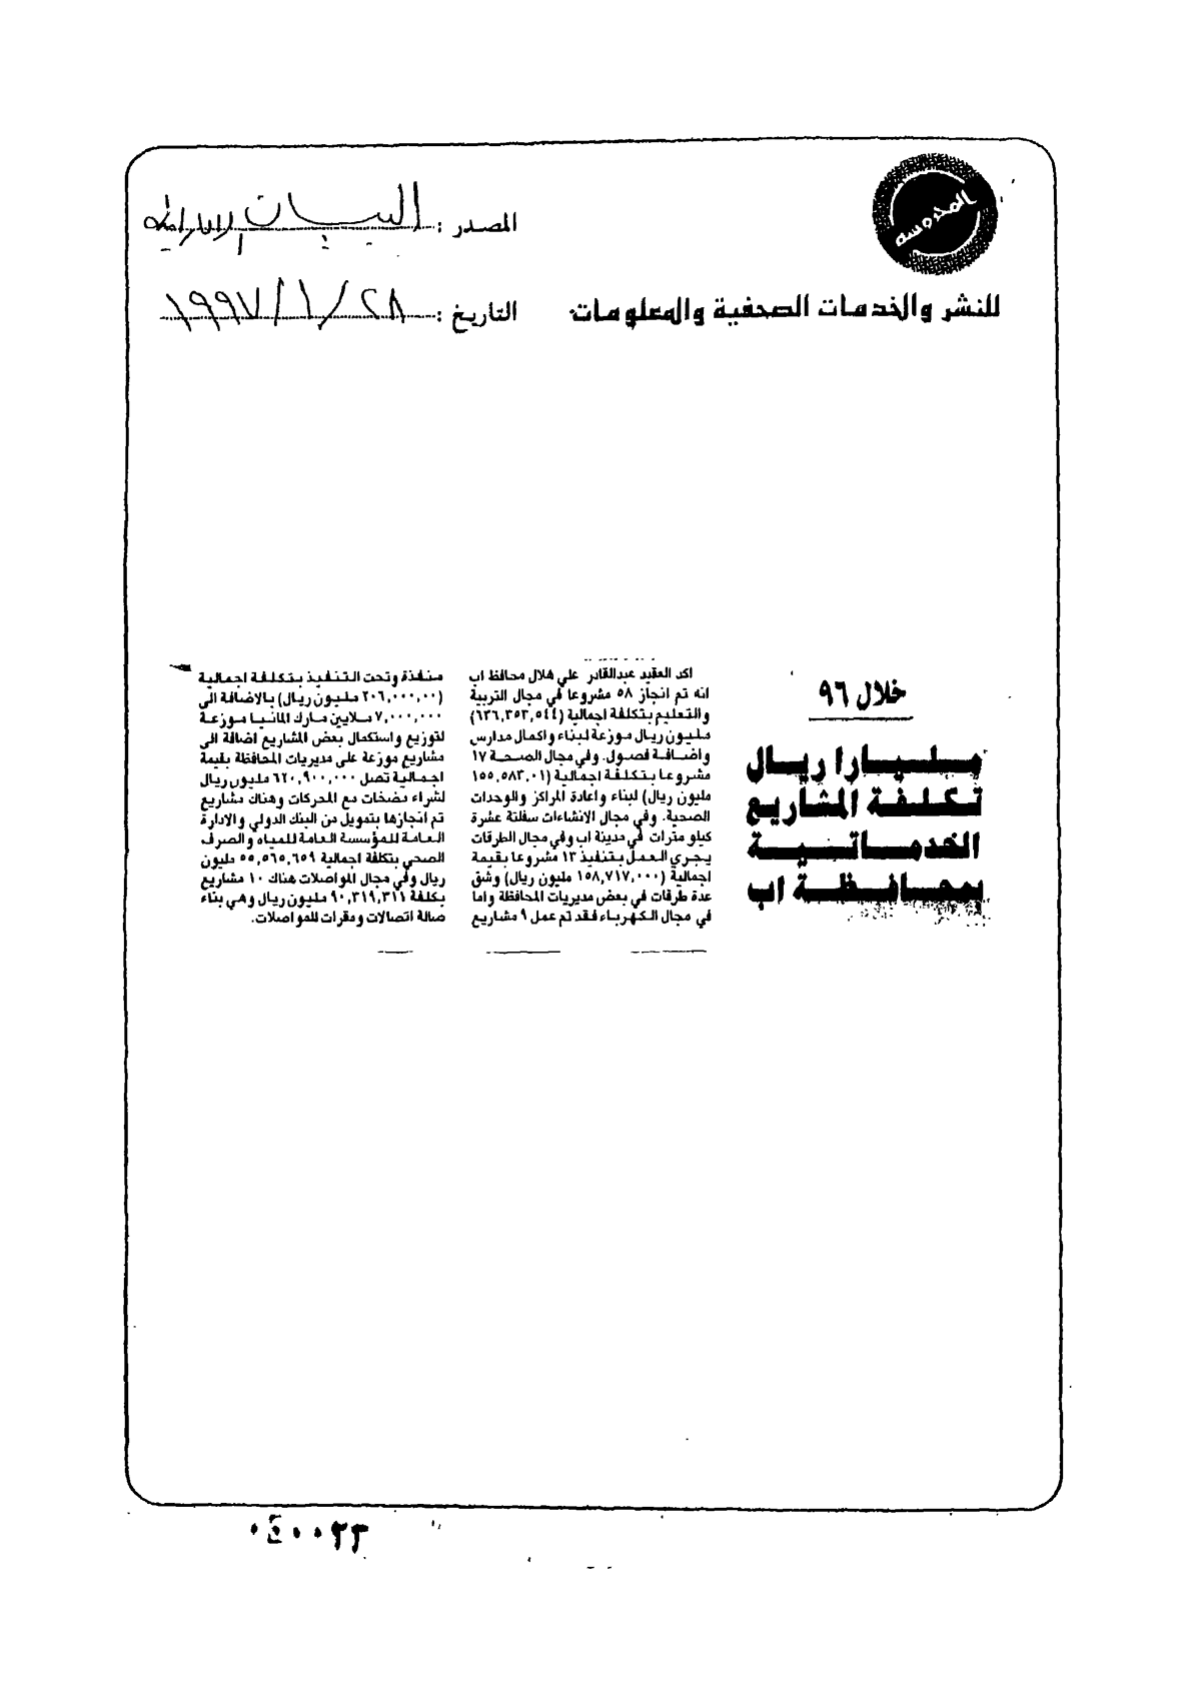 المحروسه
للنشر والخدمات الصحفية والمعلومات
المصدر : البيان الاماراتية
التاريخ : ٢٨ / ١ / ١٩٩٧
خلال ٩٦
مليارا ريال
تكلفة المشاريع
الخدماتية
بمحافظة اب
اكد العقيد عبدالقادر علي هلال محافظ اب
انه تم انجاز ٥٨ مشروعا في مجال التربية
والتعليم بتكلفة اجمالية (٦٣٦,٣٥٣,٥٤٤)
مليون ريال موزعة لبناء واكمال مدارس
واضافة فصول. وفي مجال الصحة ١٧
مشروعا بتكلفة اجمالية (١٥٥,٥٨٣,٠١
مليون ريال) لبناء واعادة المراكز والوحدات
الصحية. وفي مجال الانشاءات سفلتة عشرة
كيلو مترات في مدينة اب وفي مجال الطرقات
يجري العمل بتنفيذ ١٣ مشروعا بقيمة
اجمالية (١٥٨,٧١٧,٠٠٠ مليون ريال) وشق
عدة طرقات في بعض مديريات المحافظة واما
في مجال الكهرباء فقد تم عمل ٩ مشاريع
منفذة وتحت التنفيذ بتكلفة اجمالية
(٢٠٦,٠٠٠,٠٠ مليون ريال) بالاضافة الى
٧,٠٠٠,٠٠٠ ملايين مارك المانيا موزعة
لتوزيع واستكمال بعض المشاريع اضافة الى
مشاريع موزعة على مديريات المحافظة بقيمة
اجمالية تصل ٦٢٠,٩٠٠,٠٠٠ مليون ريال
لشراء مضخات مع المحركات وهناك مشاريع
تم انجازها بتمويل من البنك الدولي والادارة
العامة للمؤسسة العامة للمياه والصرف
الصحي بتكلفة اجمالية ٥٥,٥٦٥,٦٥٩ مليون
ريال وفي مجال المواصلات هناك ١٠ مشاريع
بكلفة ٩٠,٣١٩,٣١١ مليون ريال وهي بناء
صالة اتصالات ومقرات للمواصلات.
٠٤٠٠٢٣